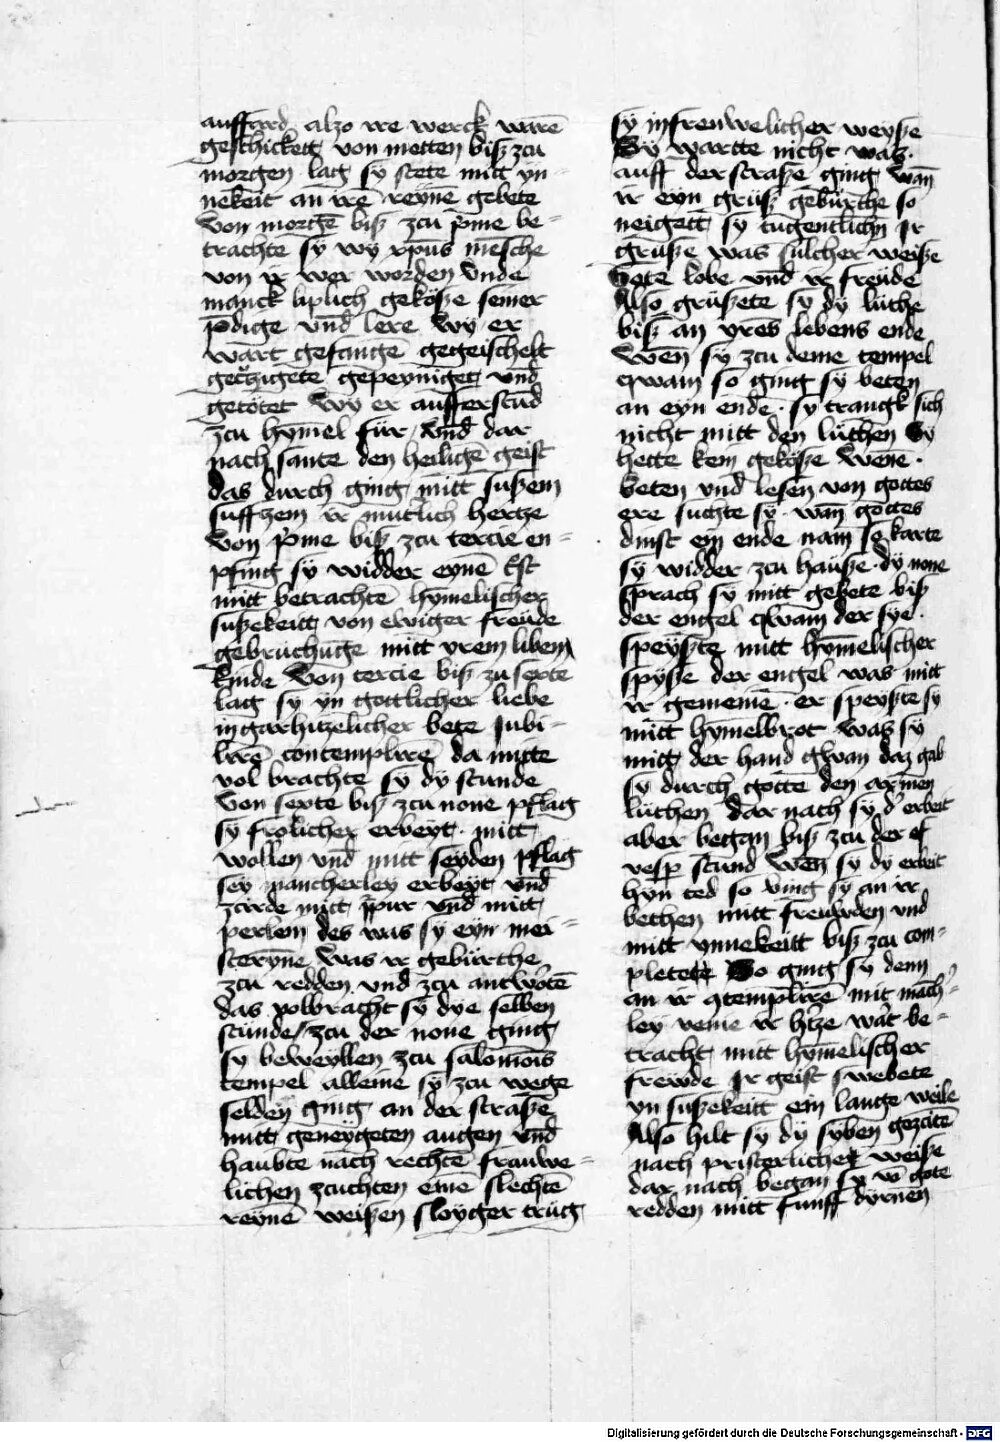 auffard also ire werck warē
geschickett von metten biß zcu
morgen lag sy stete mitt yn-
nekeit an ire reyne gebete
Von morgē biß zcu p̄me be-
trachte sy wy xp̄us mēsche
von ir wer worden Vnde
manck liplich geköße seiner
p̄dige vnd lere Wy er
wart gefangē gegeischelt
gepeyniget vnd
getötet Wy er aufferstūd
zcu hymel für vnd dar
nach sante den heiligē geist
das durch ging mitt sußem
sufftzem ir mütlich hertze
Von p̄me biß zcu tercie en-
pfing sy widder eynē
mitt betrachtē hymelischer
sußekeitt von ewiger freüde
gebruchūge mitt yrem libem
kinde Von tercie biß zu sexte
lag sy yn gottlicher liebe
in bete jubi-
lirē contemplirē da mitte
vol brachte sy dy stunde
Von sexte biß zcu none pflag
sy frölicher erbeyt mitt
wollen vnd mitt seyden pflag
sey mancherley erbeyt vnd
zirde mitt vnd mitt
perlein des was sy eyn mei-
sterynne Was ir gebürthe
zcu redden vnd zcu antwortē
das volbracht sy dye selben
stünde zcu der none ging
sy beweyllen zcu salomōis
tempel alleine sy zcu wege
selden ging an der straße
mitt geneygeten augen vnd
haubte nach rechtē frauwe-
lichen zcuchten eine slechtē
reynē weißen sloyger trüg
sy in frenwelicher weyße
Sy wartte nicht was
auff der straße ging Wan
ir eyn grüß gebürthe so
neigett sy tügentlichn ir
grüße was sülcher weiße
Gote lobe vnd ir freüde
Also grüßete sy dy lüthe
biß an yres lebens ende
Wen sy zcu deme tempel
qwam so ging sy beten
an eyn ende sy trangk sich
nicht mitt den lüthen Sy
hette kein geköße Wene
beten vnd lesen von gottes
ere suchte sy wan gottes
dinst ein ende nam so karte
sy widder zcu hauße dy none
sprach sy mitt gebete biß
der engel qwam der sye
speyßte mitt hymelischer
spyße der engel was mitt
ir gemeine er speyßte sy
mitt hymelbrot Was sy
mitt der hand gwan daz gab
sy durch gotte den armen
lüthen Dar nach sy d' erbeit
aber began biß zcu der
vesp stund Wen sy dy erbeit
hyn ted so ving sy an ir
bethen mitt freüwden vnd
mitt ynnekeitt biß zcu com-
plete So ging sy denn
an ir 9templirē mit mach'-
ley venie ir h'tze wart be-
tracht mitt hymelischer
freẅde Ir geist swebete
yn sußekeitt ein lange weile
Also hilt sy dy syben gezcitē
nach pristerlicher weiße
dar nach began sy vō gote
redden mitt funff dyrnen
Digitalisierung gefördert durch die Deutsche Forschungsgemeinschaft - DFG